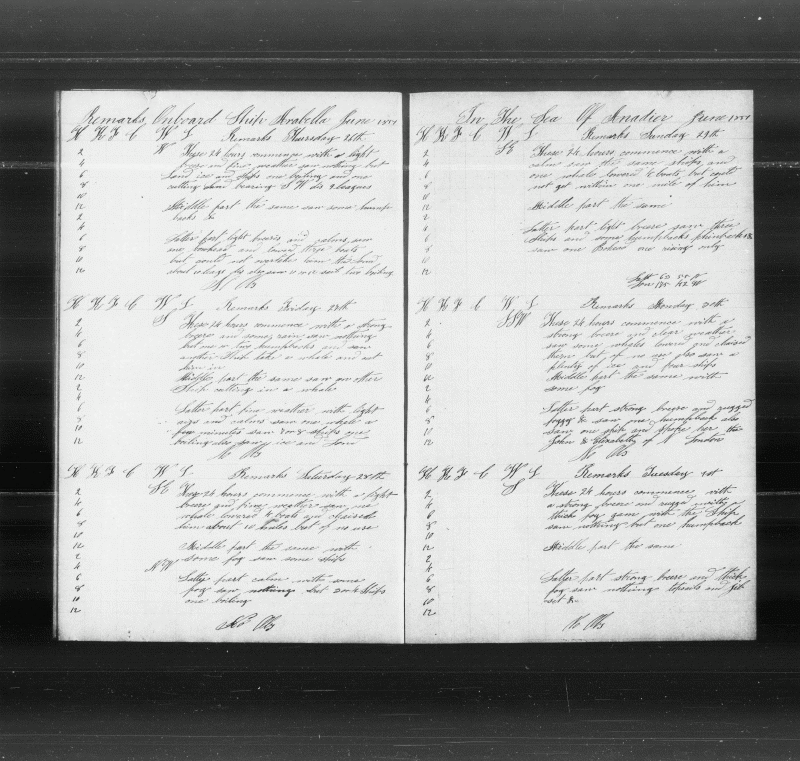 Remarks Onboard Ship Arabella June 1851
H K F C W L Remarks Thursday 26th
2 W These 24 hours commence with a light
4 breese and fine weather saw nothing but
6 land ice and ships one boiling and one
8 cutting land bearing S W dis leagues
10
12 Middle part the same saw some hump
2 backs &
4
6 Latter part light breeses and calms saw
8 one bowhead and lowed three boats
10 but could not overtake him the land
12 about
No Obs
H K F C W L Remarks Friday 27th
2 S These 24 hours commence with a strong
4 breese and some rain saw nothing
6 but one or two humpbacks and saw
8 another Ship take a whale and cut
10 him in
12 Middle part the same saw another
2 Ship cutting in a whale
4
6 Latter part fine weather with light
8 airs and calms saw one whale a
10 few minutes saw 7 or 8 ships one
12 boiling also some ice and land
No Obs
H K F C W L Remarks Saturday 28th
2 SE These 24 hours commence with a light
4 breese and fine weather saw one
6 whale lowered 4 boats and chaised
8 him about 10 miles but of no use
10
12 Middle part the same with
2 some fog saw some ships
4 NW
6 Latter part calm with some
8 fog saw nothing but 3 or 4 Ships
10 one boiling
12
No Obs
In The Sea Of Anadier June 1851
H K F C W L Remarks Sunday 29th
2 SE These 24 hours commence with a
4 calm saw the same ships and
6 one whale lowered 4 boats but could
8 not get within one mile of him
10
12 Middle part the same
2
4
6 Latter part light breese saw three
8 Ships and some humpbacks finbacks &c
10 saw one Bowhead one rising only
12
Latt
Lon
H K F C W L Remarks Monday 30th
2 SSW These 24 hours commence with a
4 strong breese and clear weather
6 saw some whales lowered and chaised
8 them but of no use also saw a
10 plenty of ice and four ships
12 Middle part the same with
2 some fog
4
6 Latter part strong breese and rugged
8 foggy & saw one humpback also
10 saw one ship and spoke her the
12 John & Elizabeth of N London
No Obs
H K F C W L Remarks Tuesday 1st
2 S These 24 hours commence with
4 a strong breese and ruggd with a
6 thick fog gone with the Ships
8 saw nothing but one humpback
10
12 Middle part the same
2
4
6 Latter part strong breese and thick
8 fog saw nothing
10 set &c
12
No Obs